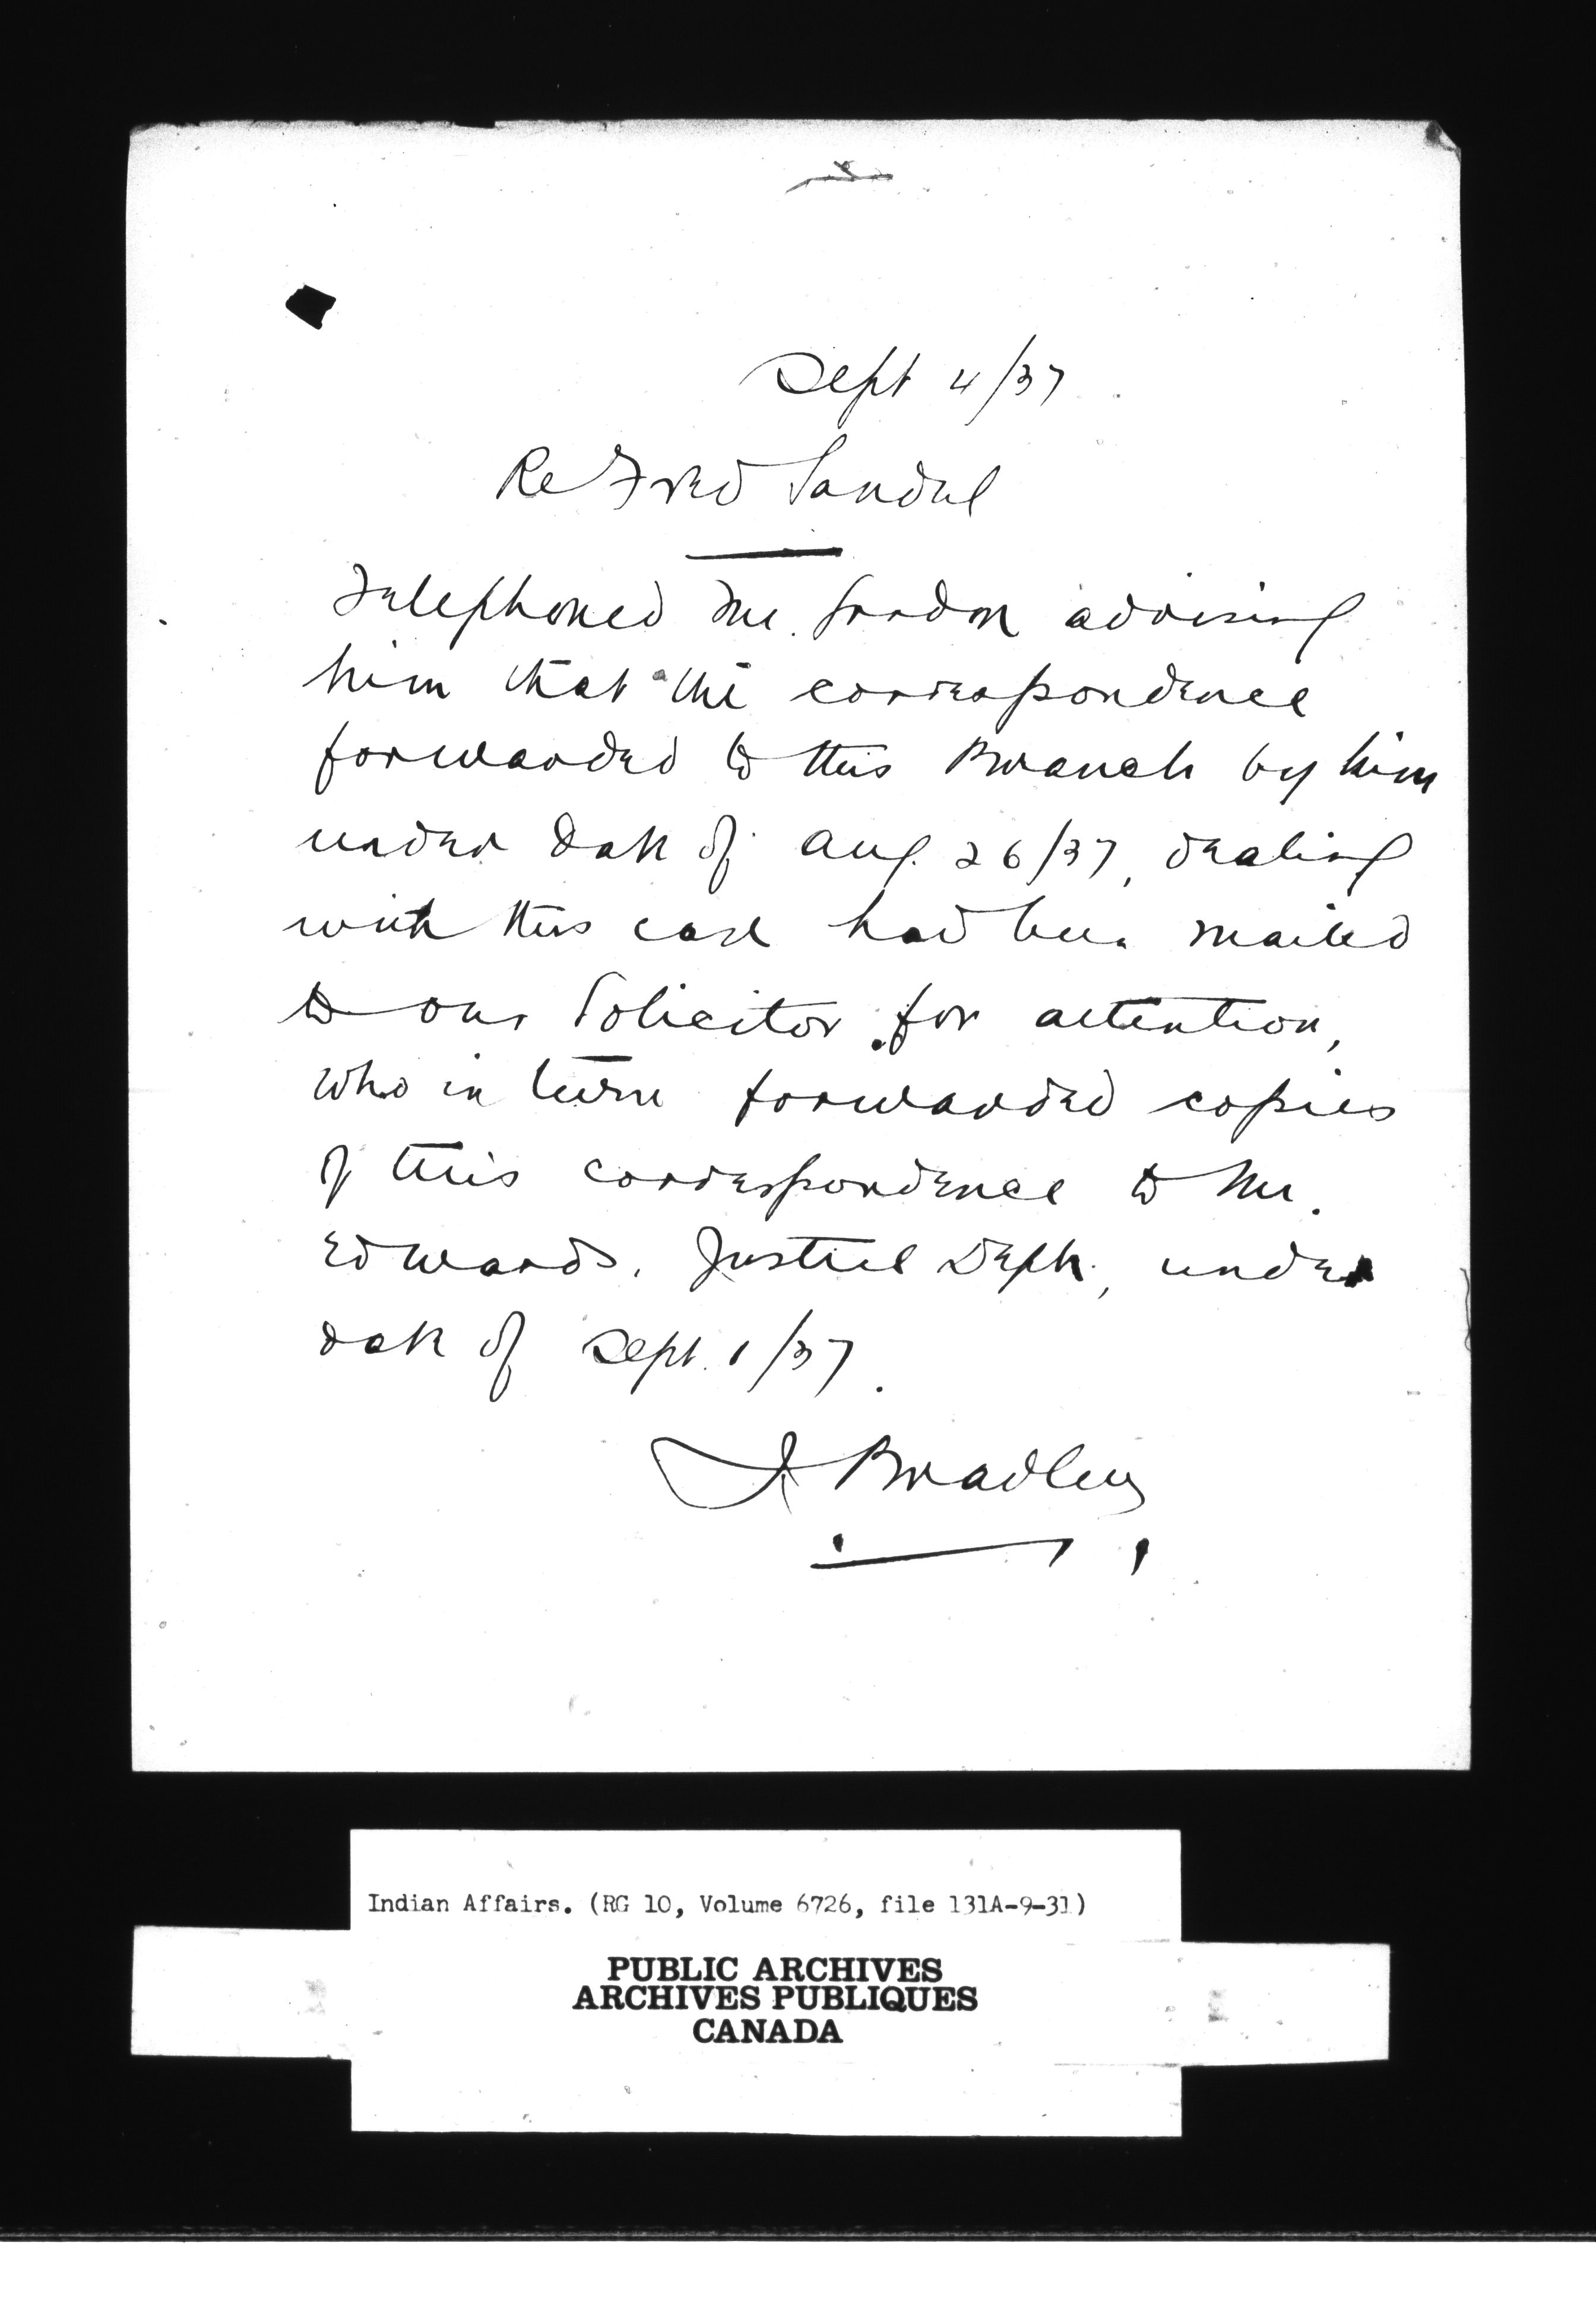 Sept 4/37
Re Fred Sandul
Telephoned Mr. Gordon advising
him that the correspondence
forwarded to this Branch by him
under date of Aug. 26/37, dealing
with this case had been mailed
to our Solicitor for attention,
who in turn forwarded copies
of this correspondence to Mr.
Edwards, Justice Dept., under
date of Sept. 1/37.
Bradley
Indian Affairs. (RG 10, Volume 6726, file 131A-9-31)
PUBLIC ARCHIVES
ARCHIVES PUBLIQUES
CANADA